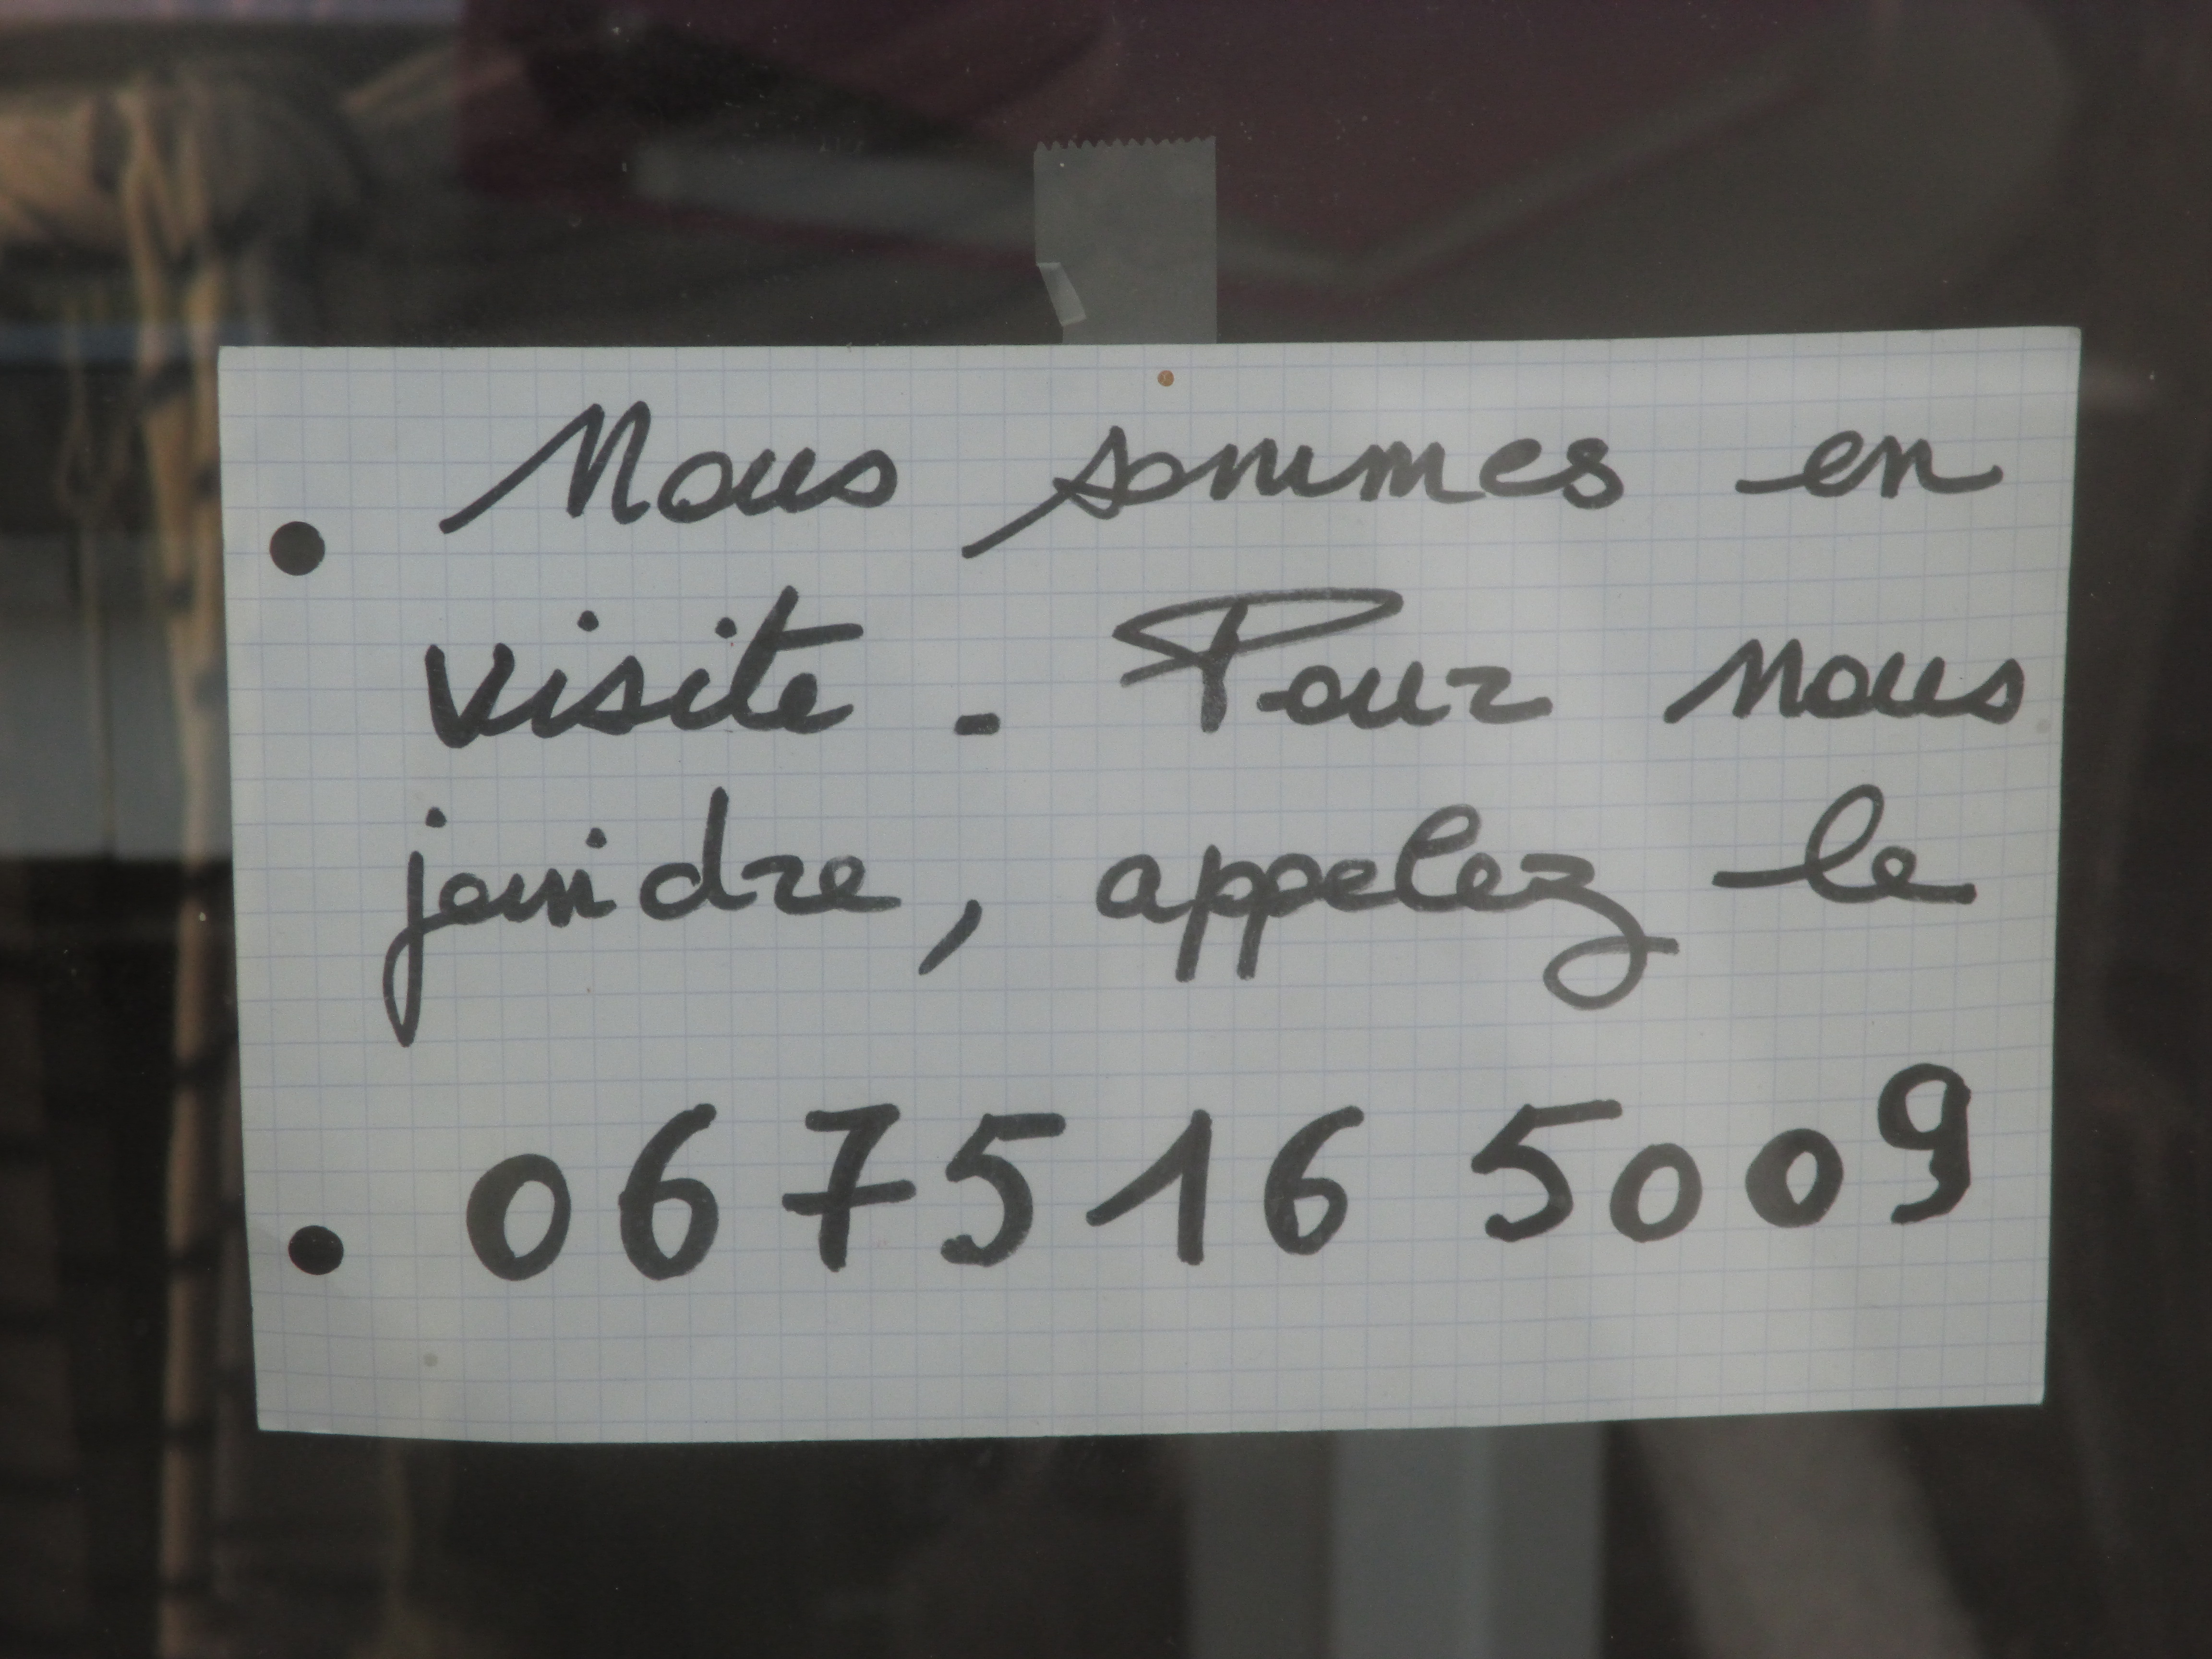 Nous sommes en
visite. Pour nous
joindre, appelez le
0675165009